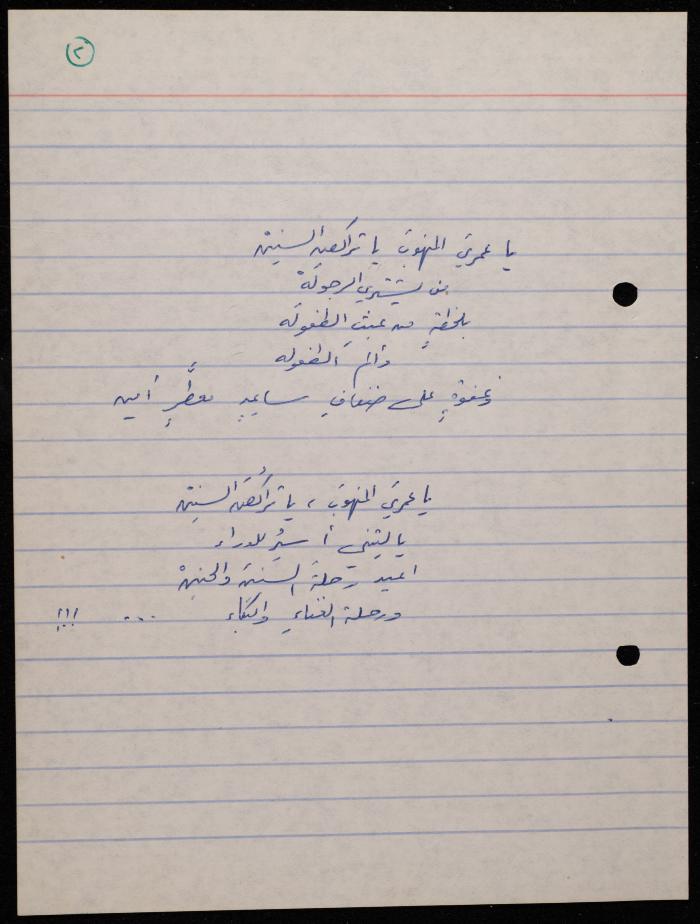 ٢
يا عمريَ المنهوبَ يا تراكضَ السنينْ
من يشتري الرجولَهْ
بلحظةٍ من عبثِ الطفولَه
وألمِ الطفوله
وغفوةٍ على ضفافِ ساعدٍ معطَّرٍ أمين
يا عمريَ المنهوبَ ، يا تراكُضَ السنينْ
يا ليتني أسيرُ للوراء
اعيد رحلةَ السنين والحنينْ
ورحلة الغناءِ والبكاء ... !!!